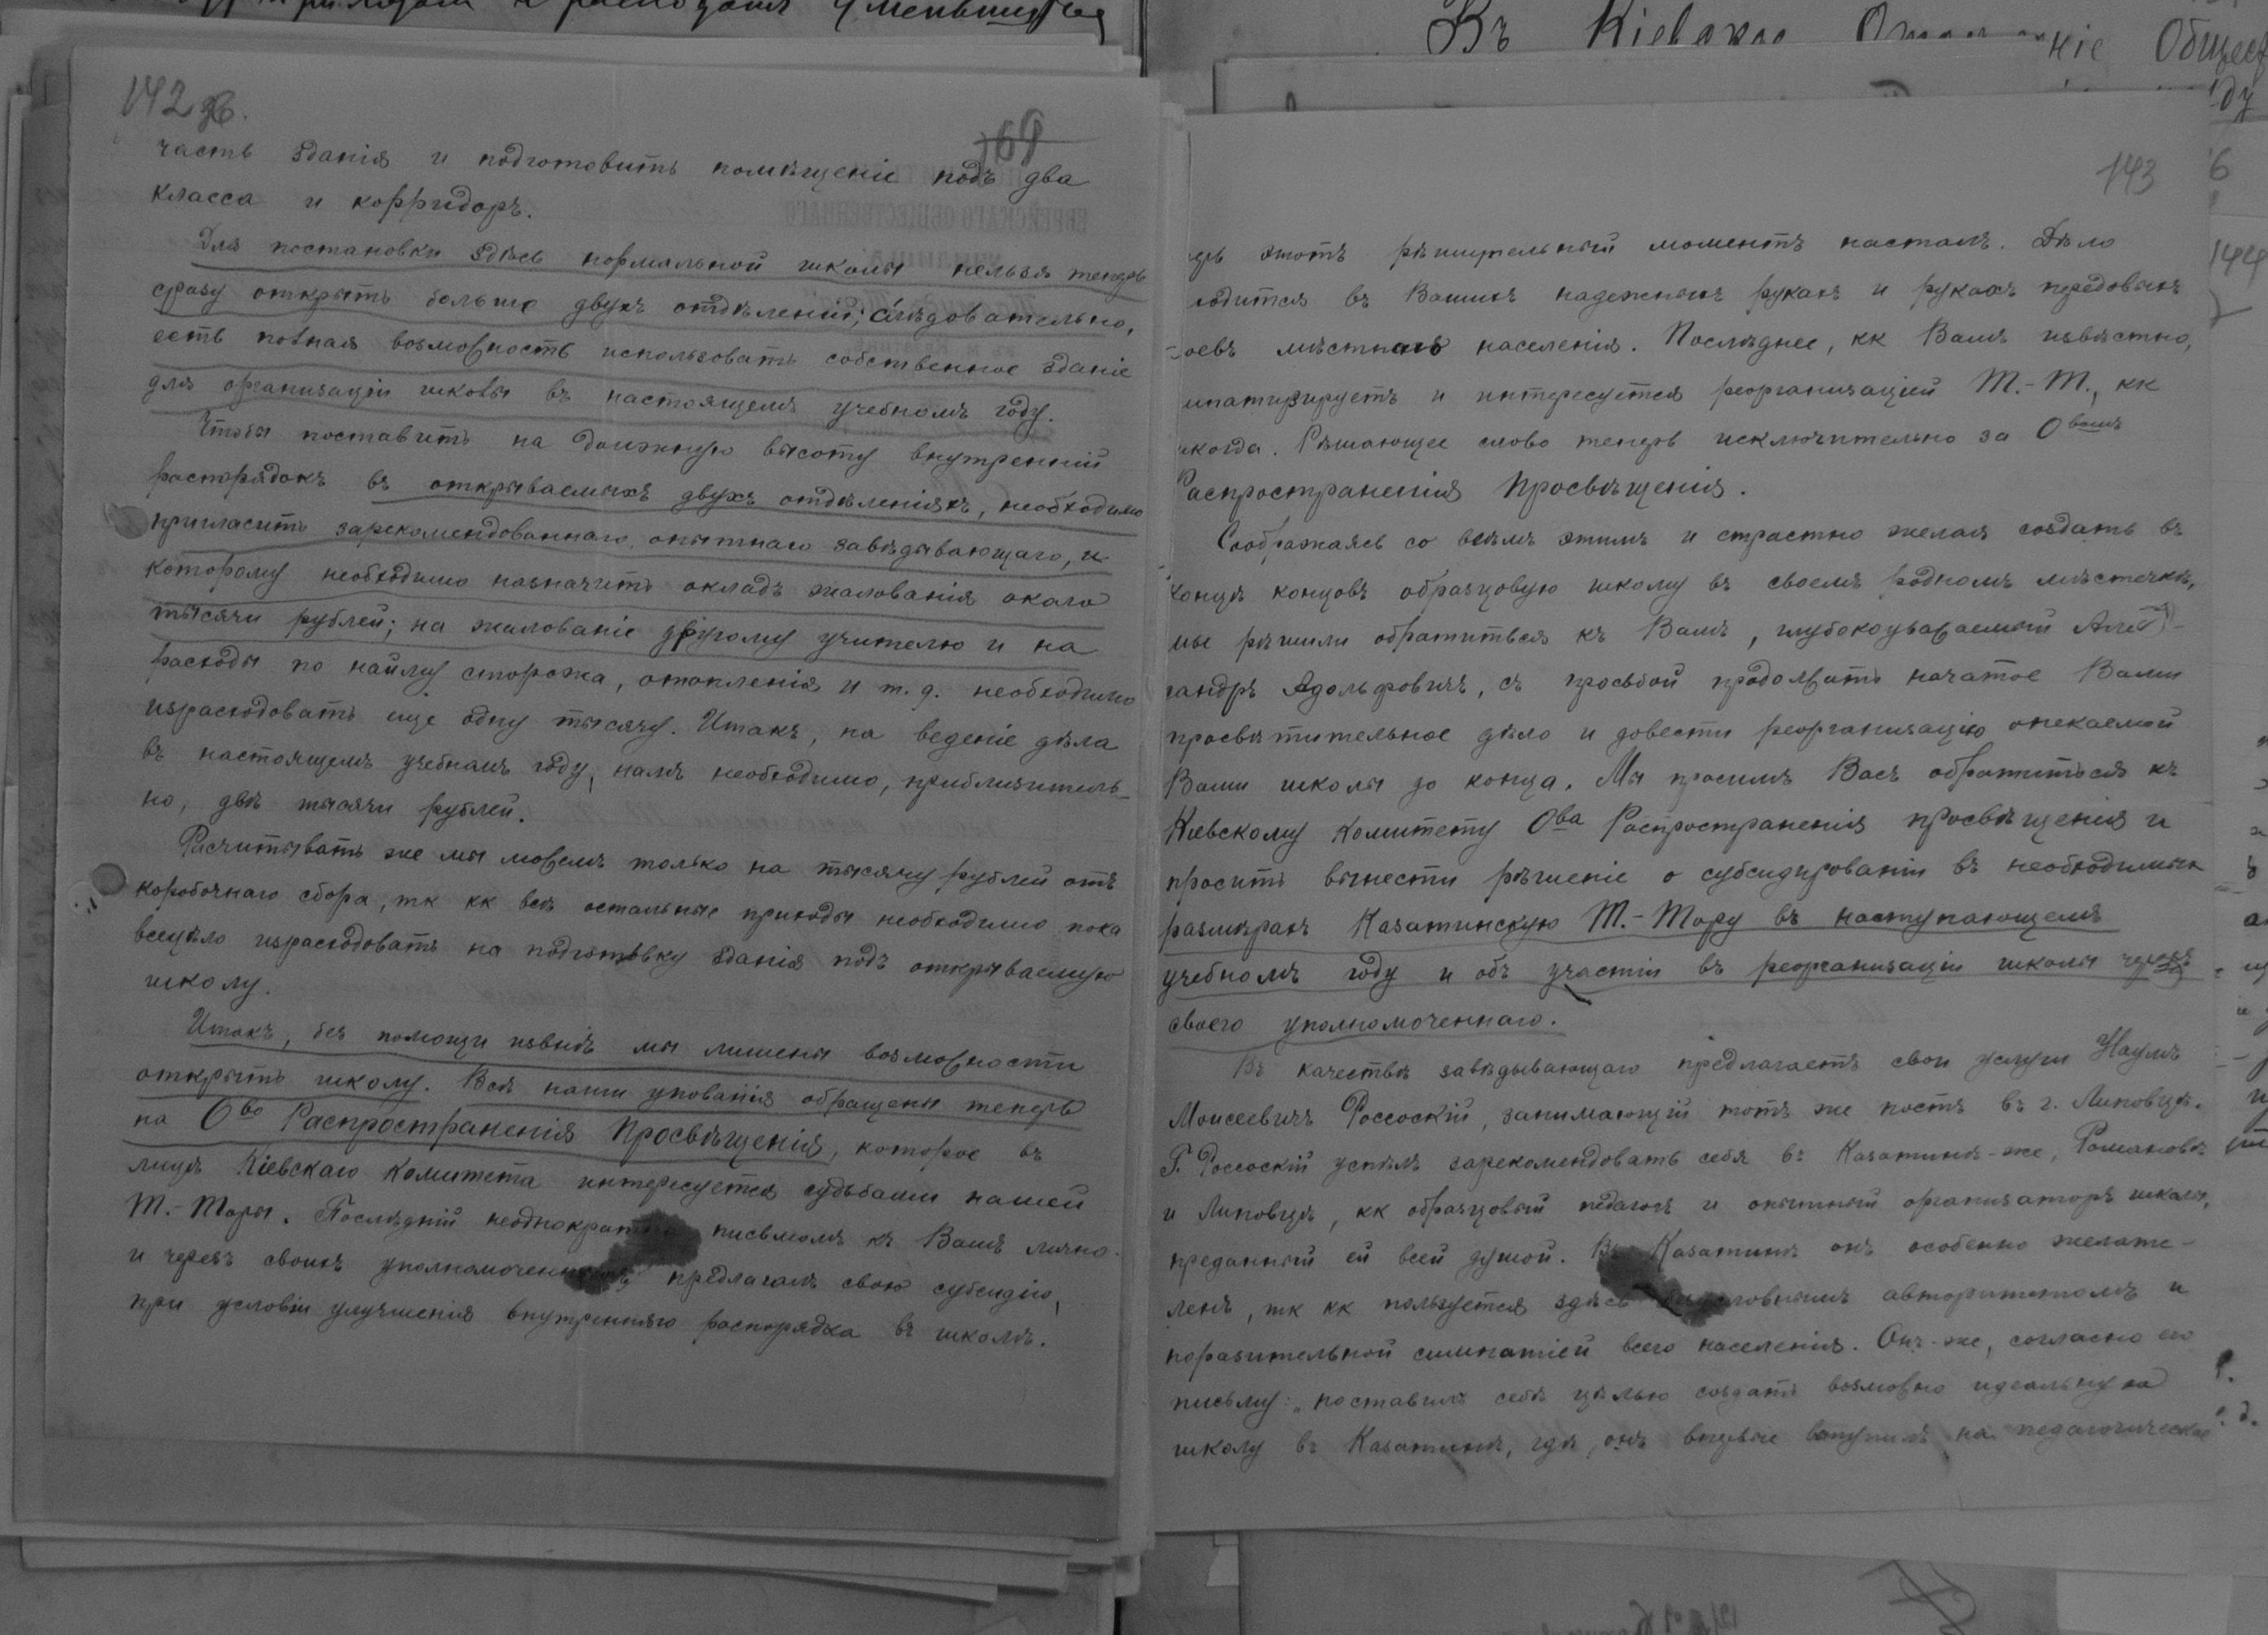 142 зв.
169
часть зданія и подготовить помѣщеніе подъ два
класса и корридоръ.
Для постановки здѣсь нормальной школы нельзя теперь
сразу открыть больше двухъ отдѣленій; слѣдовательно,
есть полная возможность использовать собственное зданіе
для организаціи школы въ настоящемъ учебномъ году.
Чтобы поставить на должную высоту внутренній
распорядокъ въ открываемыхъ двухъ отдѣленіяхъ, необходимо
пригласить зарекомендованнаго опытнаго завѣдывающаго, и
которому необходимо назначить окладъ жалованія около
тысячи рублей; на жалованіе другому учителю и на
расходы по найму сторожа, отопленія и т. д. необходимо
израсходовать еще одну тысячу. Итакъ, на веденіе дѣла
въ настоящемъ учебномъ году, намъ необходимо, приблизитель-
но, двѣ тысячи рублей.
Расчитывать же мы можемъ только на тысячу рублей отъ
коробочнаго сбора, тк кк всѣ остальные приходы необходимо пока
всецѣло израсходовать на подготовку зданія подъ открываемую
школу.
Итакъ, безъ помощи извнѣ мы лишены возможности
открыть школу. Всѣ наши упованія обращены теперь
на Ово Распространенія Просвѣщенія, которое въ
лицѣ Кіевскаго Комитета интересуется судьбами нашей
Т.-Торы. Послѣдній неоднократно письмомъ къ Вамъ лично
и черезъ своихъ уполномоченныхъ предлагалъ свою субсидію,
при условіи улучшенія внутренняго распорядка въ школѣ.
Въ Кіевское Общес
143
этотъ рѣшительный моментъ насталъ. Дѣло
ходится въ Вашихъ надежныхъ рукахъ и рукахъ передовыхъ
оевъ мѣстнаго населенія. Послѣднее, кк Вамъ извѣстно,
мпатизируетъ и интересуется реорганизаціей Т.-Т., кк
икогда. Рѣшающее слово теперь исключительно за Овомъ
Распространенія Просвѣщенія.
Сообразжаясь со всѣмъ этимъ и страстно желая создать въ
концѣ концовъ образцовую школу въ своемъ родномъ мѣстечкѣ,
мы рѣшили обратиться къ Вамъ, глубокоуважаемый Алек-
сандръ Адольфовичъ, съ просьбой продолжать начатое Вами
просвѣтительное дѣло и довести реорганизацію опекаемой
Вами школы до конца. Мы просимъ Васъ обратиться къ
Кіевскому Комитету Ова Распространенія просвѣщенія и
просить вынести рѣшеніе о субсидированіи въ необходимыхъ
размѣрахъ Казатинскую Т.-Тору въ наступающемъ
учебномъ году и объ участіи въ реорганизаціи школы черезъ
своего уполномоченнаго.
Въ качествѣ завѣдывающаго предлагаетъ свои услуги Наумъ
Моисеевичъ Россоскій, занимающій тотъ же постъ въ г. Липовцѣ.
Г. Россоскій успѣлъ зарекомендовать себя въ Казатинѣ-же, Романовѣ
и Липовцѣ, кк образцовый педагогъ и опытный организаторъ школы,
преданный ей всей душой. Въ Казатинѣ онъ особенно желате-
ленъ, тк кк пользуется здѣсь безусловнымъ авторитетомъ и
поразительной симпатіей всего населенія. Онъ-же, согласно его
письму: „поставилъ себѣ цѣлью создать возможно идеальную
школу въ Казатинѣ, гдѣ онъ впервые вступилъ на педагогическое
144